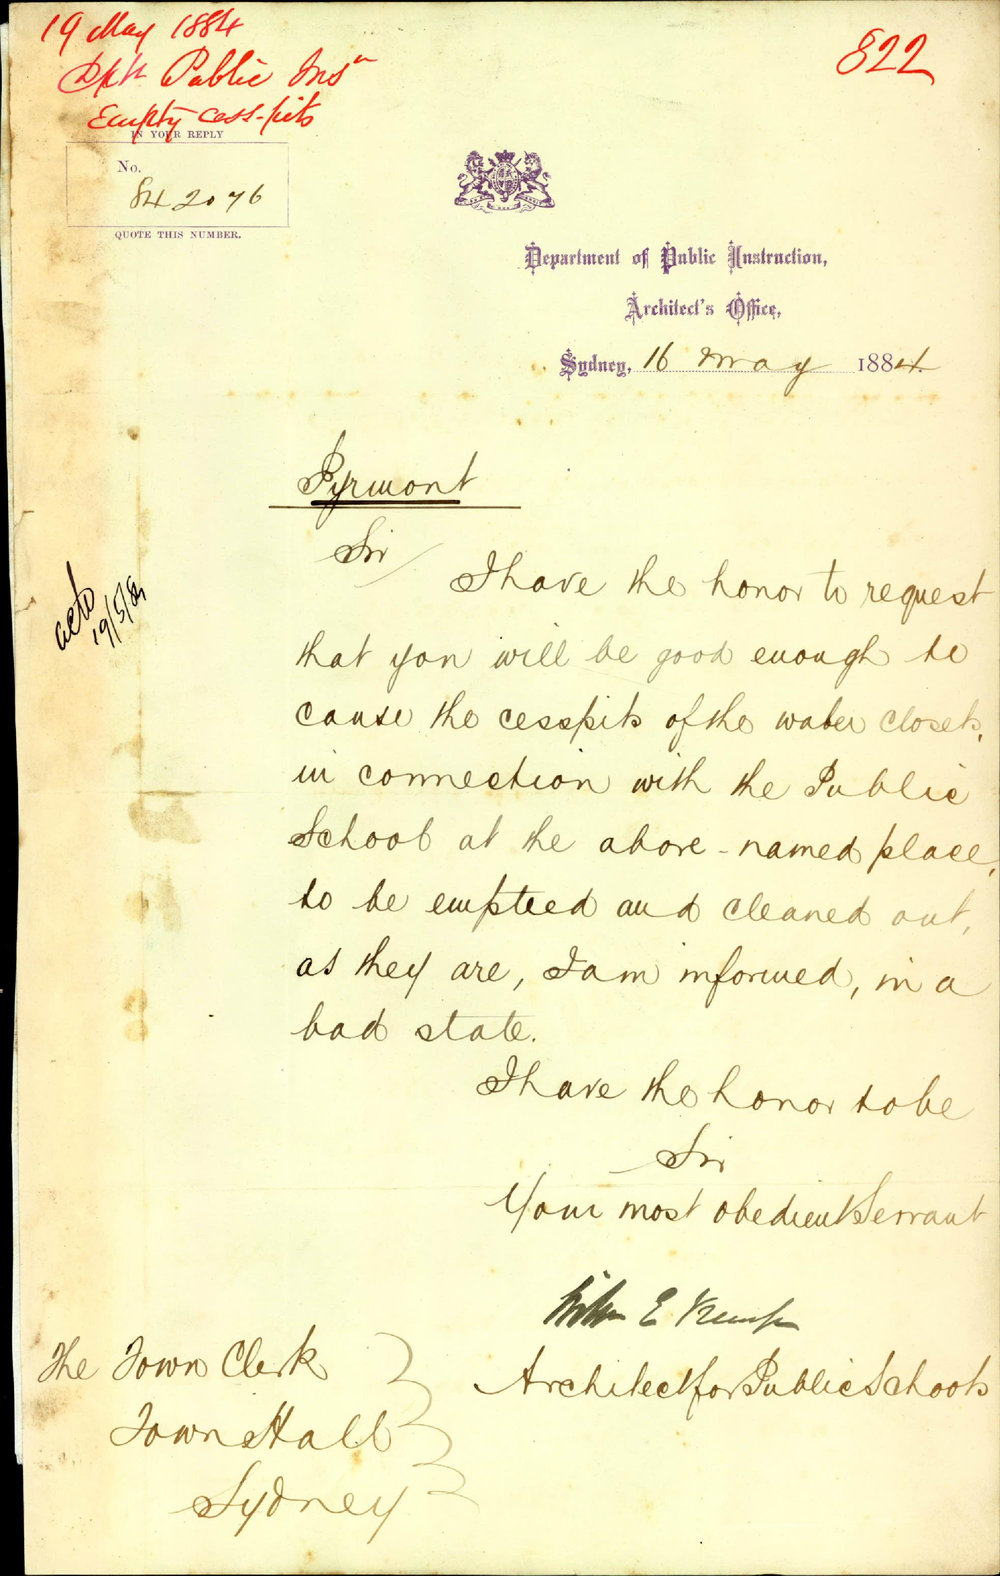 19 May 1884
822
Dpt Public Insn
Empty cess-pits
IN YOUR REPLY
No.
84 2076
QUOTE THIS NUMBER.
Department of Public Instruction,
Architect's Office,
Sydney, 16 May 1884.
Pyrmont
Sir
I have the honor to request
that you will be good enough to
cause the cesspits of the water closets,
in connection with the Public
School at the above-named place,
to be emptied and cleaned out,
as they are, I am informed, in a
bad state.
I have the honor to be
Sir
Your most obedient Servant
E Kemp
Architect for Public Schools
The Town Clerk
Town Hall
Sydney
19/5/84